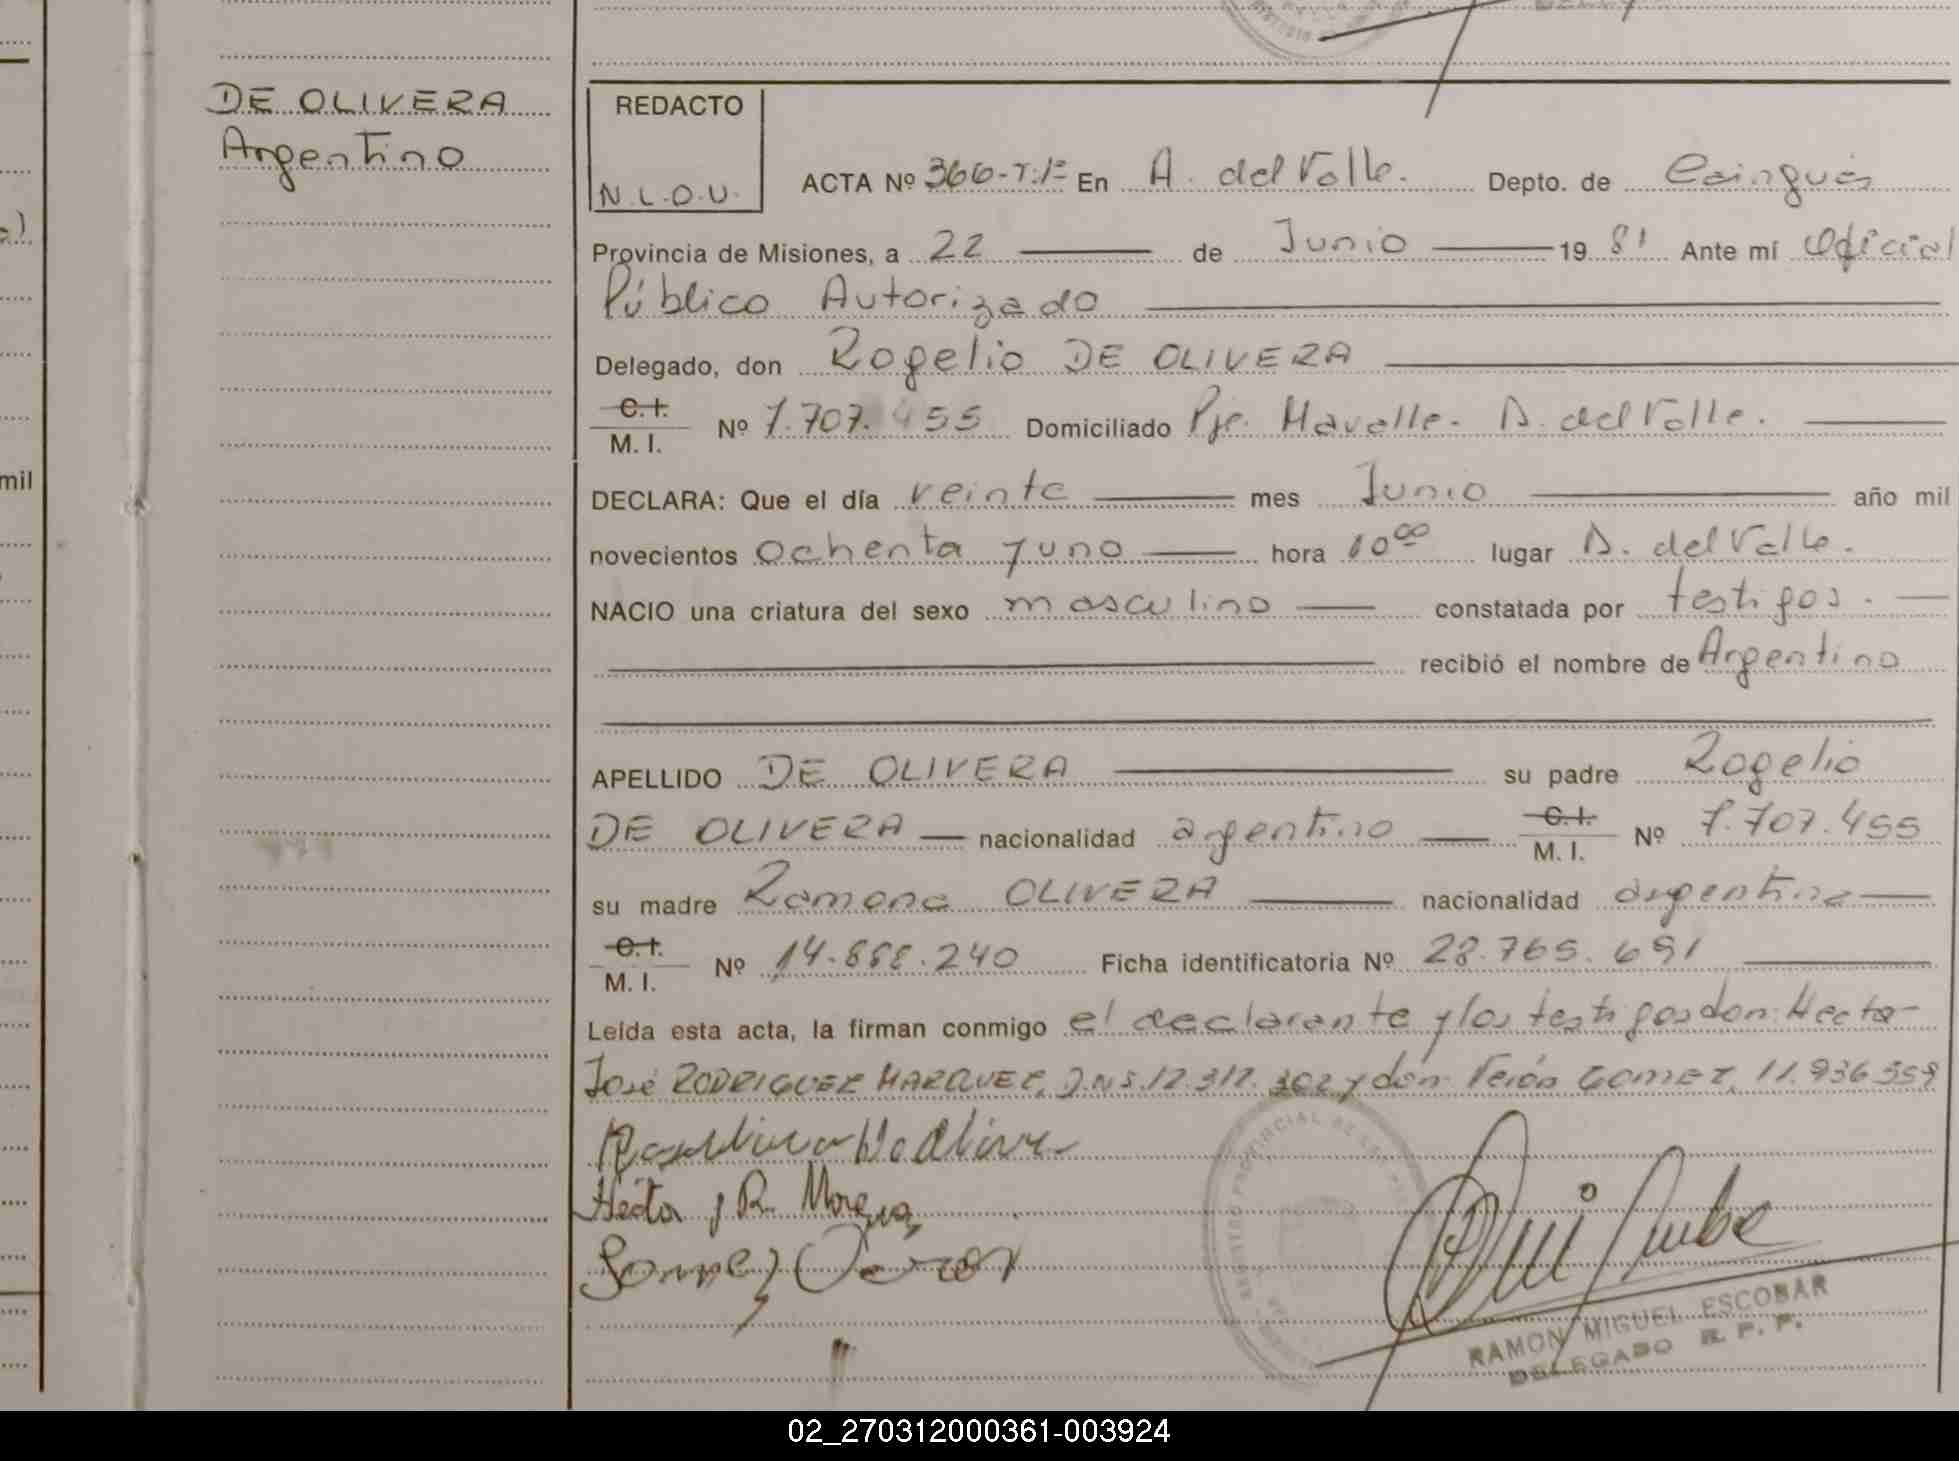 DE OLIVERA
Argentino
REDACTO
N.L.O.U.
ACTA Nº 366-T:1º En A. del Valle. Depto. de Cainguás
Provincia de Misiones, a 22 de Junio 1981 Ante mí Oficial
Público Autorizado
Delegado, don Rogelio DE OLIVERA
C.I.
M.I. Nº 7.707.455 Domiciliado Pje. Mavalle. A. del Valle.
DECLARA: Que el día veinte mes Junio año mil
novecientos ochenta y uno hora 10⁰⁰ lugar A. del Valle.
NACIO una criatura del sexo masculino constatada por testigos.
recibió el nombre de Argentino
APELLIDO DE OLIVERA su padre Rogelio
DE OLIVERA nacionalidad argentino C.I. M.I. Nº 7.707.455
su madre Ramona OLIVERA nacionalidad argentina
C.I.
M.I. Nº 14.888.240 Ficha identificatoria Nº 28.765.691
Leída esta acta, la firman conmigo el declarante y los testigos don: Hector
José RODRIGUEZ MARQUEZ, D.N.I. 12.317.302 y don Verón GOMEZ, 11.936.559
Hector J R. Marquez
Gomez Veron
REGISTRO PROVINCIAL DE LAS
RAMON MIGUEL ESCOBAR
DELEGADO R. P. P.
mil
02_270312000361-003924